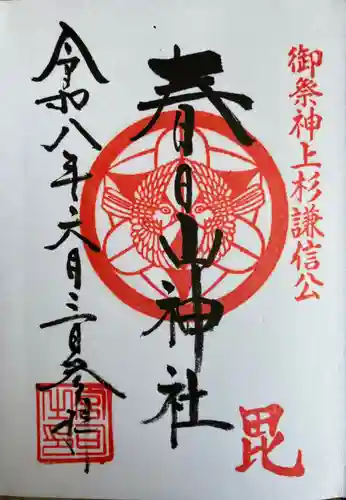 御祭神上杉謙信公
毘
春日山神社
令和八年六月三日参拝